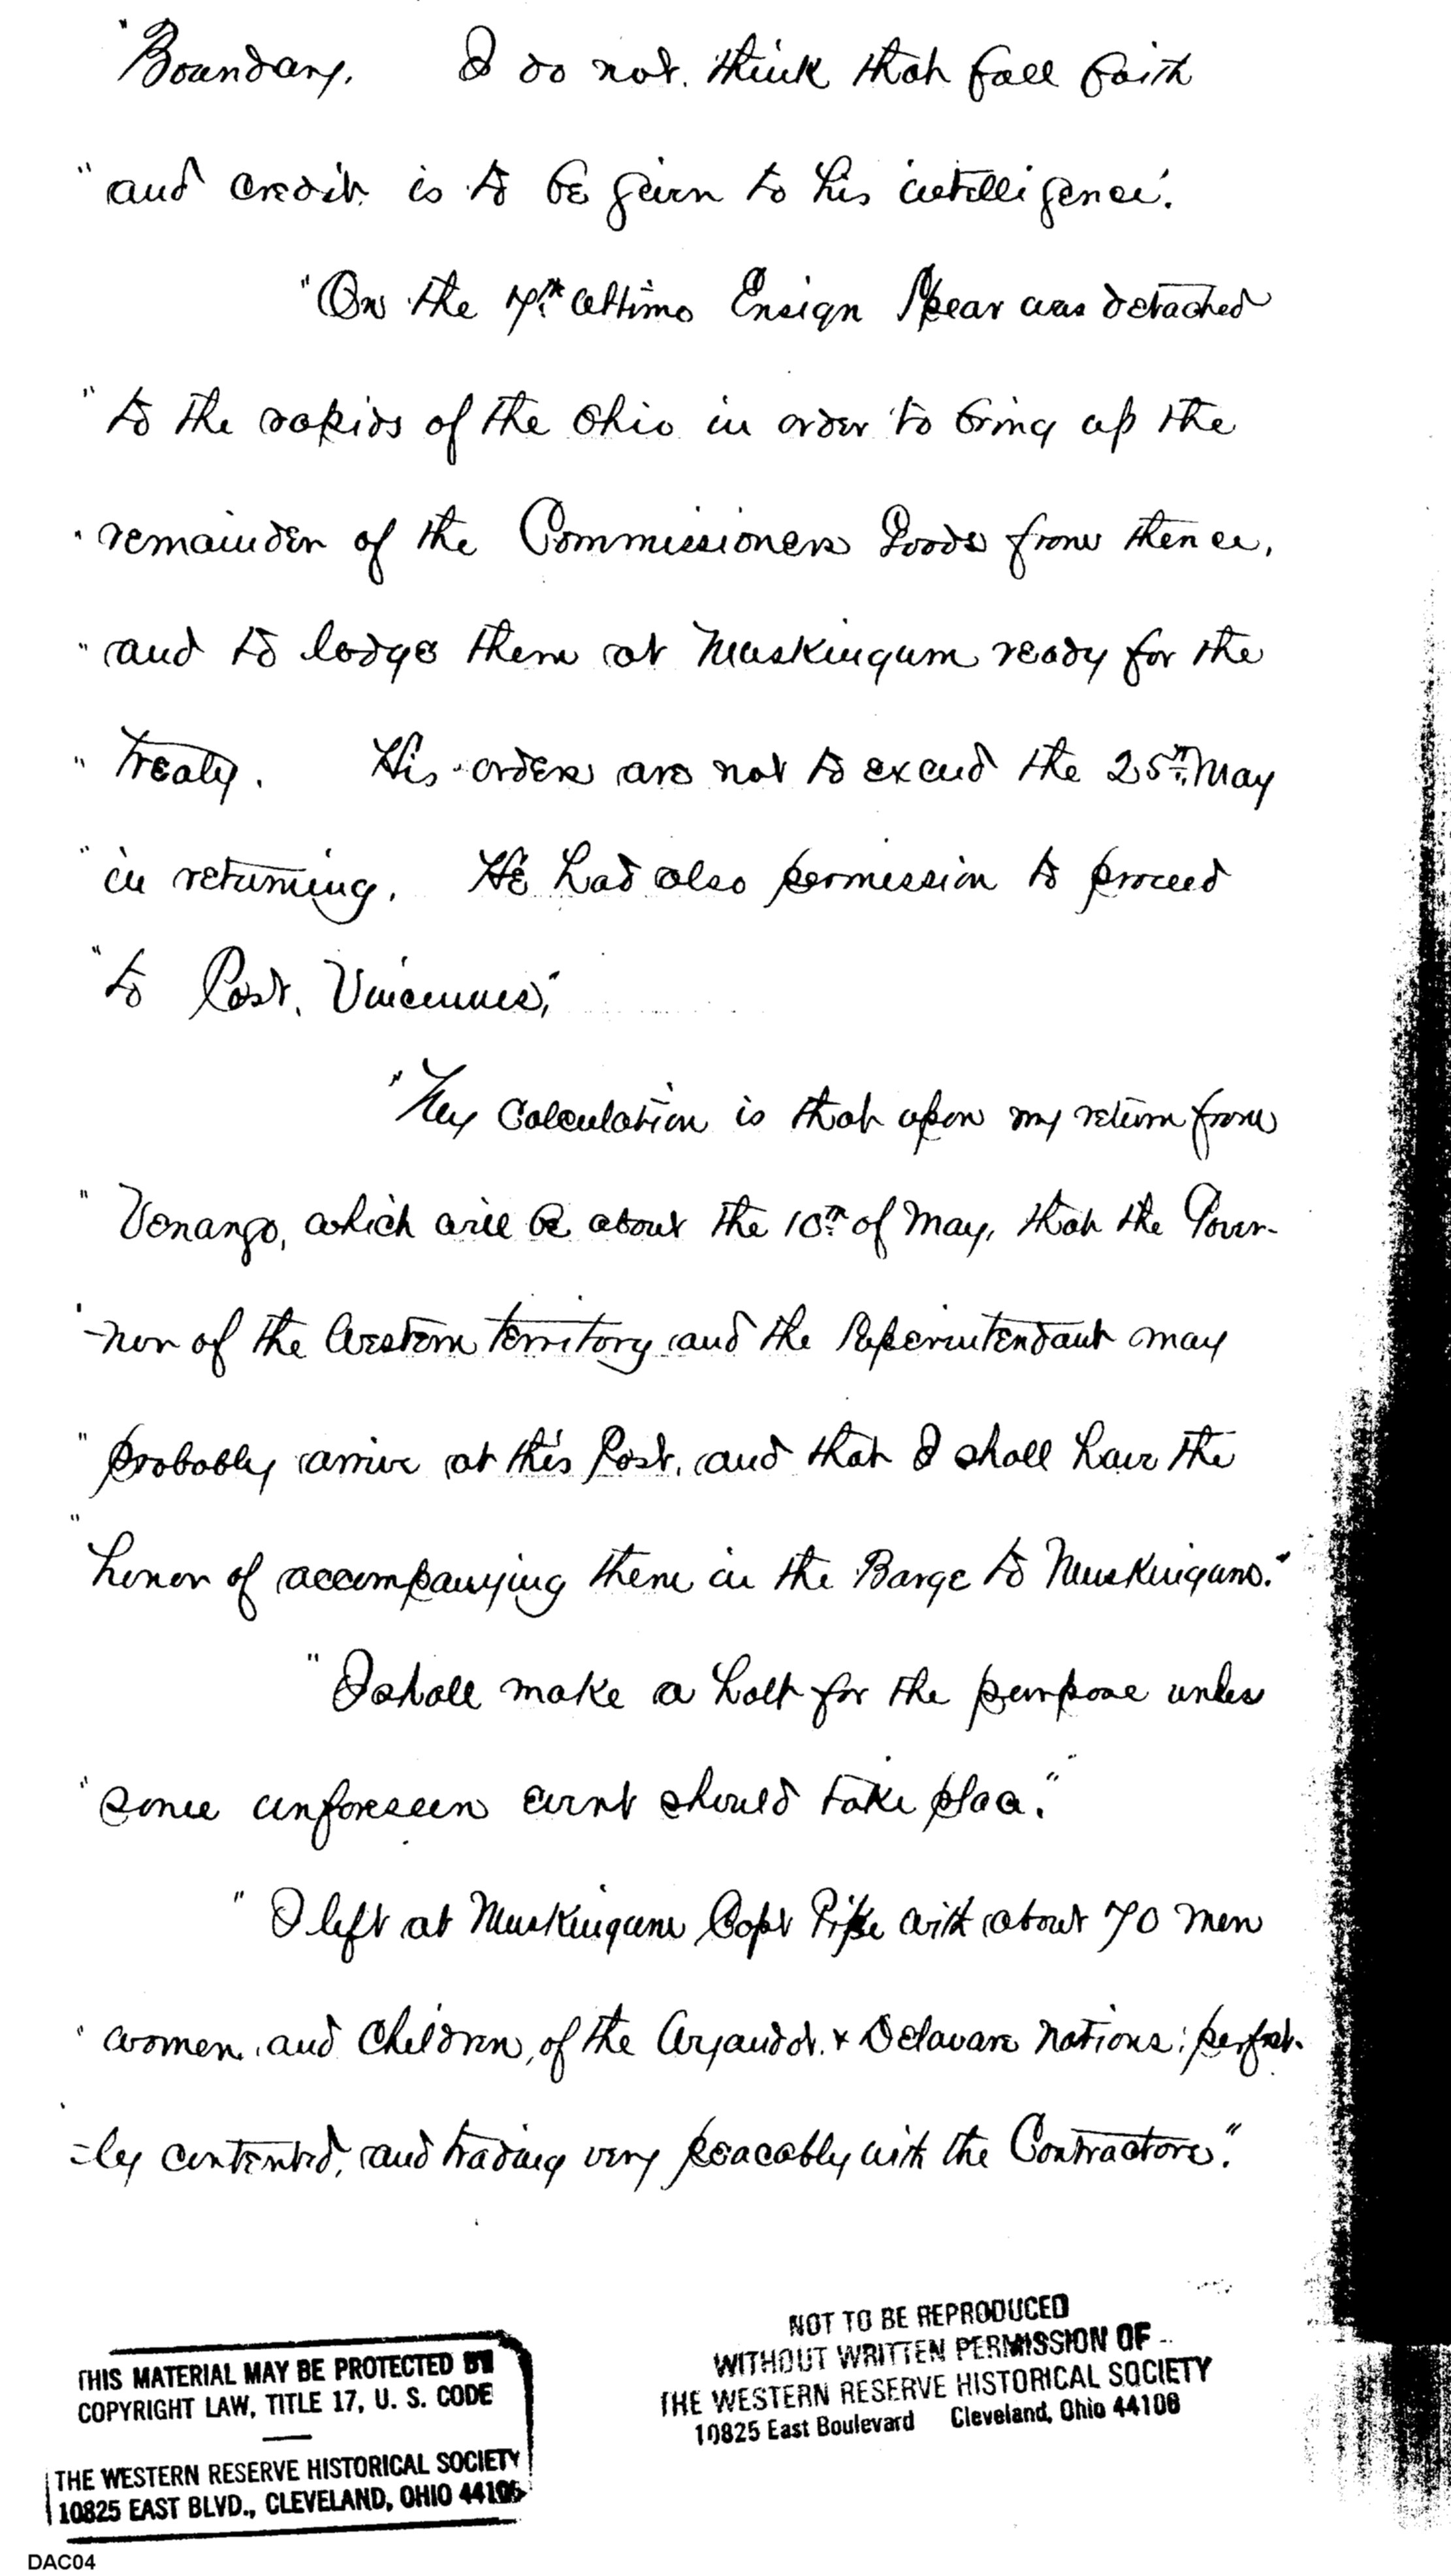 "Boundary. I do not think that full faith
"and credit is to be given to his intelligence.
"On the 7th ultimo Ensign Spear was detached
"to the rapids of the Ohio in order to bring up the
"remainder of the Commissioners Goods from thence,
"and to lodge them at Muskingum ready for the
"Treaty. His orders are not to exceed the 25th May
"in returning. He had also permission to proceed
"to Post Vincennes,"
"My Calculation is that upon my return from
"Venango, which will be about the 10th of May, that the Gover-
"-nor of the Western Territory and the Superintendant may
"probably arrive at this Post, and that I shall have the
"honor of accompanying them in the Barge to Muskingum."
"I shall make a halt for the purpose unless
"some unforeseen event should take place."
"I left at Muskingum Capt Pipe with about 70 men
"women, and Children, of the Wyandot & Delaware Nations; perfect-
"=ly contented, and trading very peacably with the Contractors."
THIS MATERIAL MAY BE PROTECTED BY
COPYRIGHT LAW, TITLE 17, U. S. CODE
THE WESTERN RESERVE HISTORICAL SOCIETY
10825 EAST BLVD., CLEVELAND, OHIO 44106
NOT TO BE REPRODUCED
WITHOUT WRITTEN PERMISSION OF
THE WESTERN RESERVE HISTORICAL SOCIETY
10825 East Boulevard Cleveland, Ohio 44106
DAC04